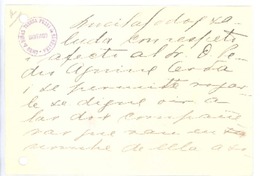 Lucila Godoy sa-
luda con respeto i
afecto al Sr. D. Pe-
dro Aguirre Cerda
i se permite rogar-
le se digne oír a
las dos compañe-
ras que van en
nombre de ella a